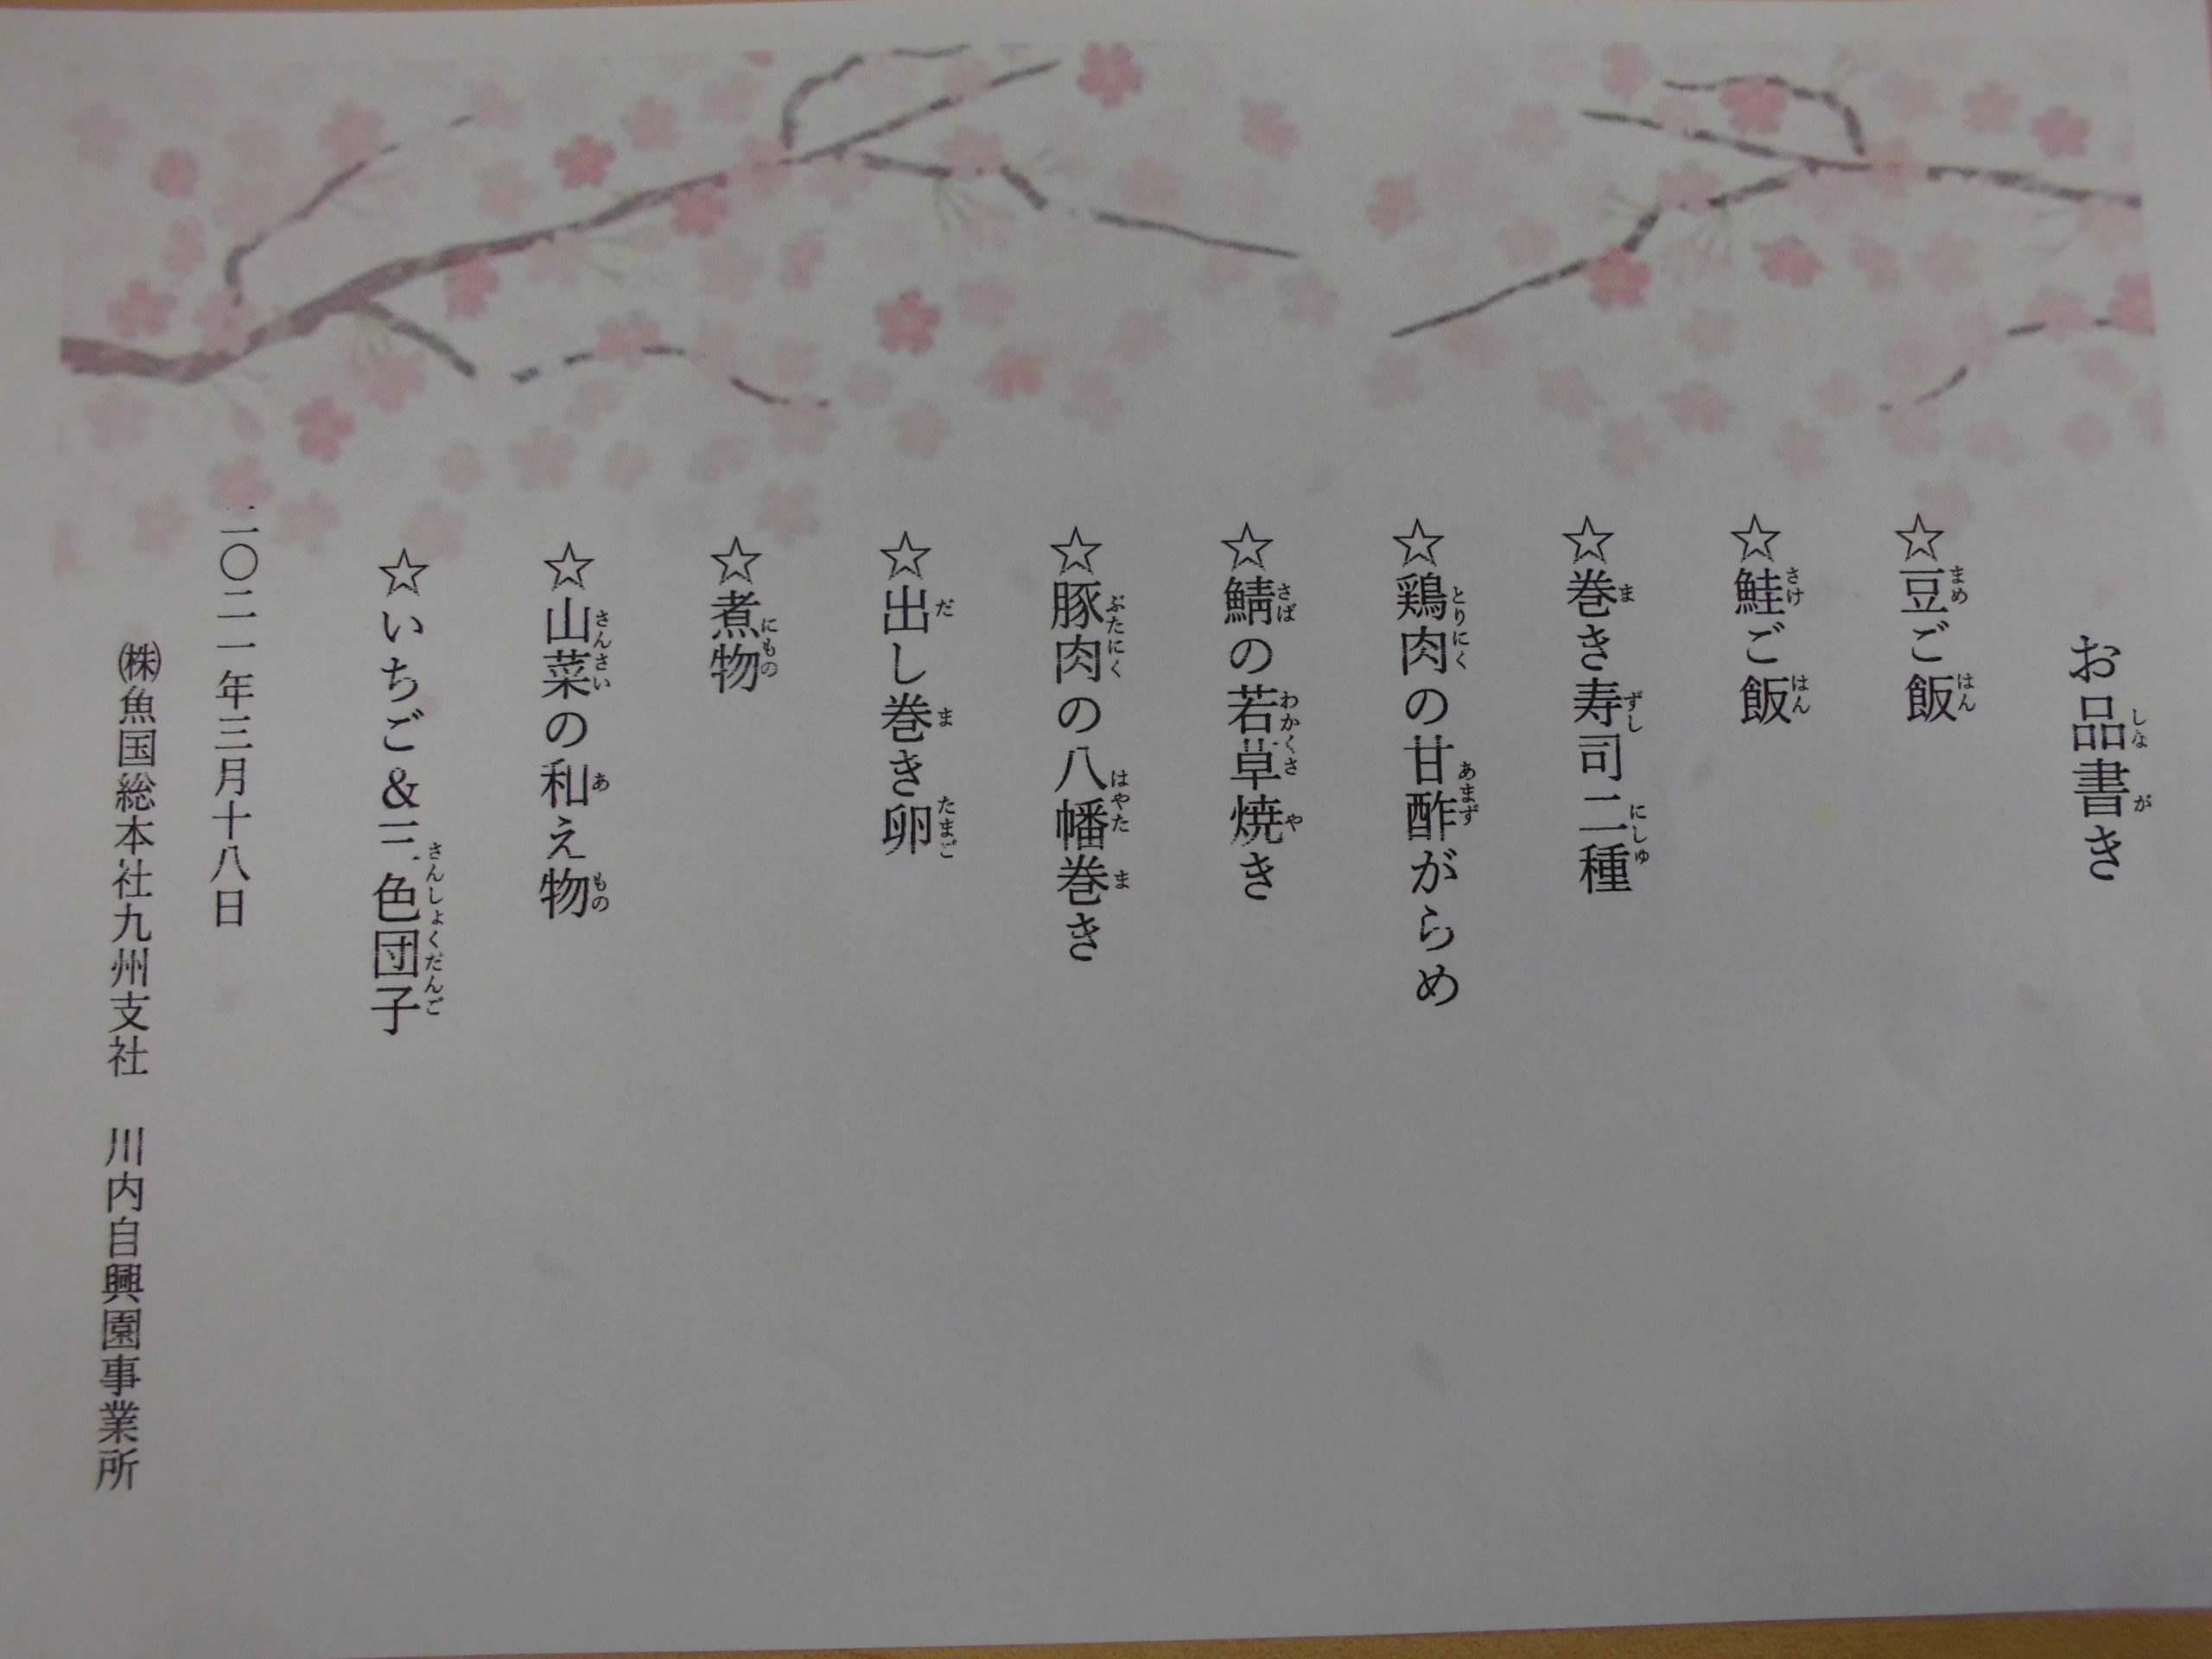 お品書き
☆豆ご飯
☆鮭ご飯
☆巻き寿司二種
☆鶏肉の甘酢がらめ
☆鯖の若草焼き
☆豚肉の八幡巻き
☆出し巻き卵
☆煮物
☆山菜の和え物
☆いちご＆三色団子
二〇二一年三月十八日
㈱魚国総本社九州支社　川内自興園事業所